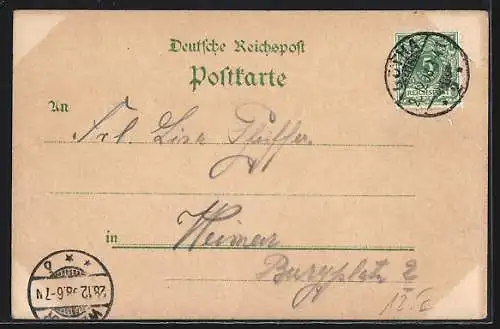 Deutsche Reichspost
Postkarte
An
Frl. Lisa Pfeiffer
in Weimar
Burgplatz 2
12.
GOTHA
5
REICHSPOST
28.12 98.6-7N